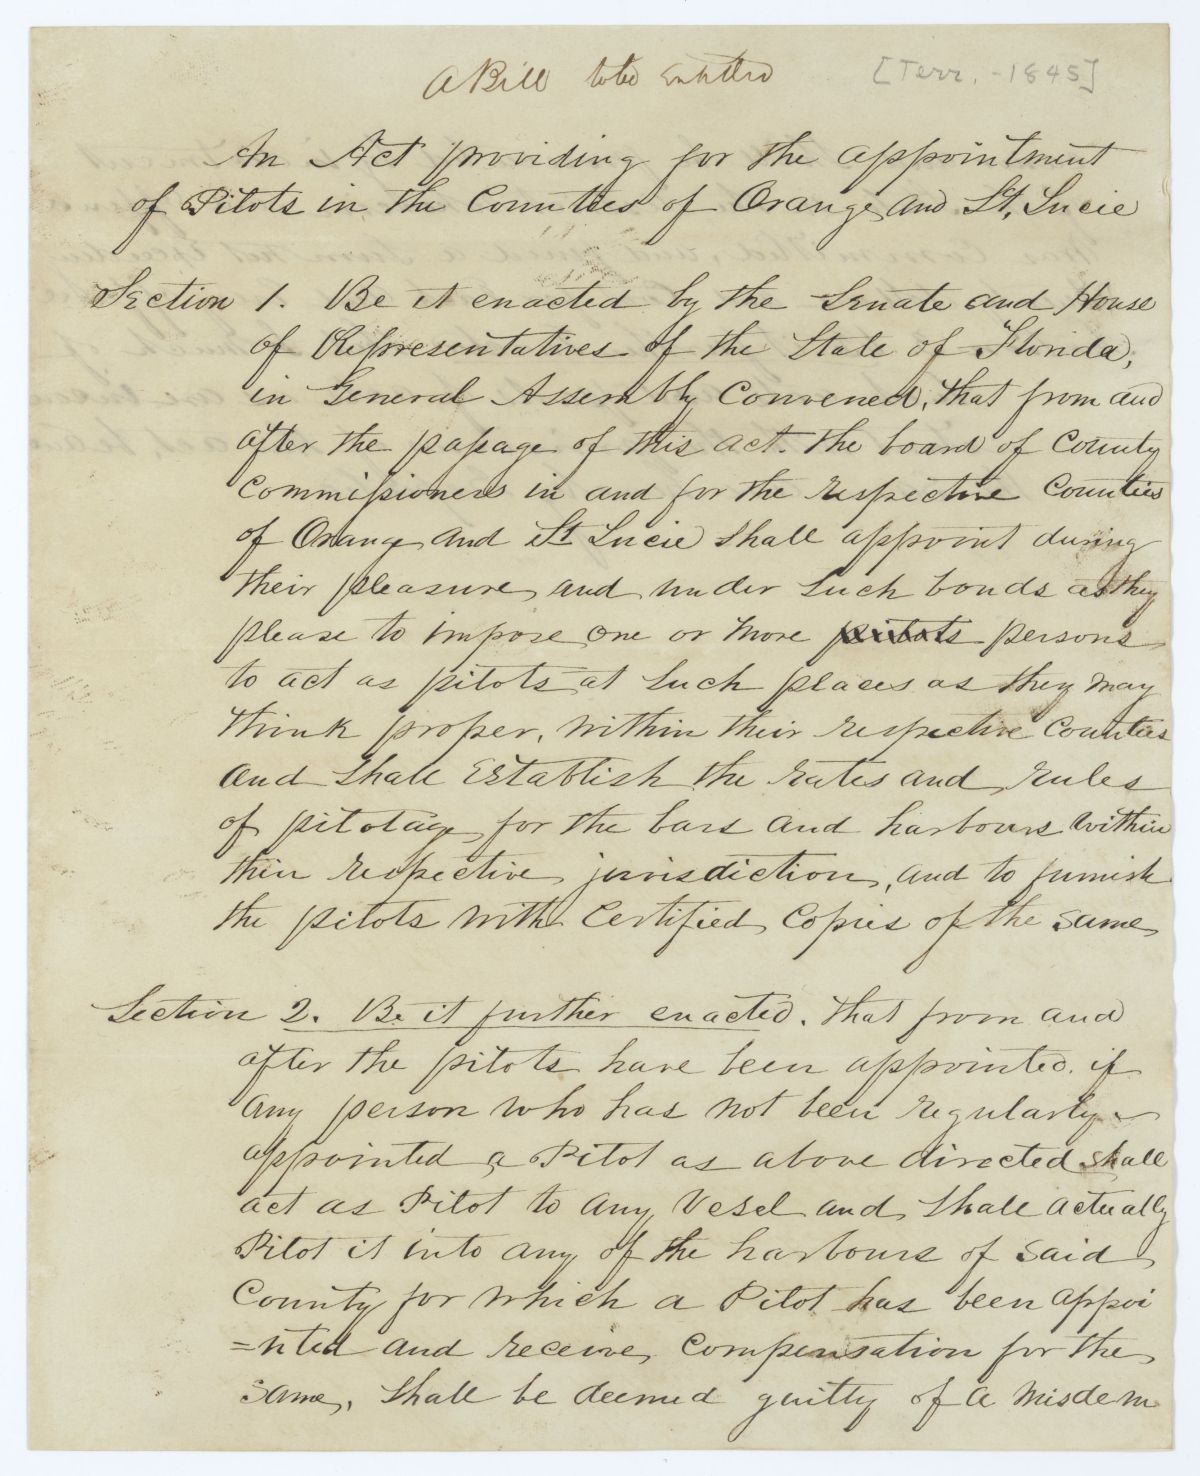 A Bill to be Entitled
[Terr. - 1845]
An Act providing for the appointment
of Pilots in the Counties of Orange and St. Lucie
Section 1. Be it enacted by the Senate and House
of Representatives of the State of Florida,
in General Assembly Convened, that from and
after the passage of this act. the board of County
Commissioners in and for the respective Counties
of Orange and St Lucie shall appoint during
their pleasure and under such bonds as they
please to impose one or more pilots persons
to act as pilots at such places as they may
think proper, within their respective Counties
and shall Establish the rates and rules
of pilotage for the bars and harbours within
their respective jurisdiction, and to furnish
the pilots with Certified Copies of the same
Section 2. Be it further enacted. that from and
after the pilots have been appointed. if
any person who has not been regularly
appointed a Pilot as above directed shall
act as Pilot to any Vesel and shall actually
Pilot it into any of the harbours of said
County for which a Pilot has been appoi
=nted and receive compensation for the
same, shall be deemed guilty of a misdem